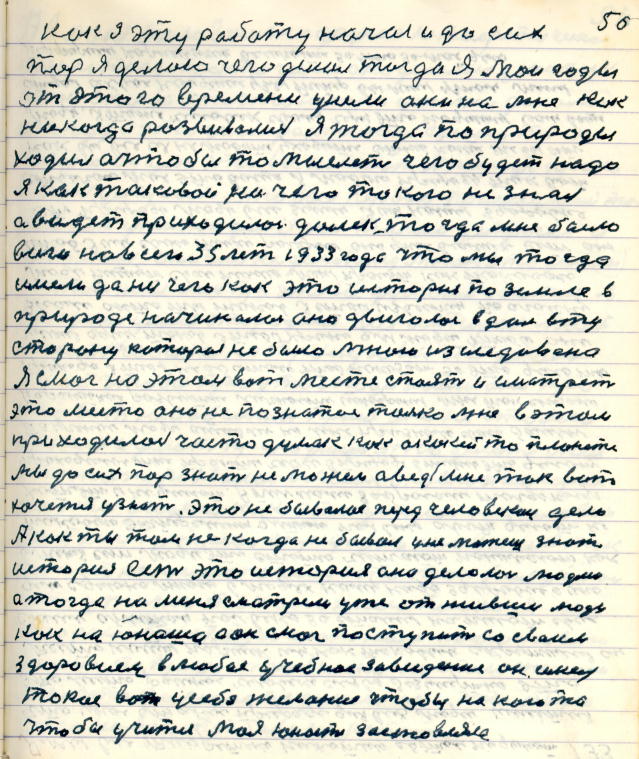 56
как я эту работу начал и до сих
пор я делаю чего делал тогда я Мои годы
от этого времени ушли они на мне как
никогда розвивались Я тогда по природы
ходил а чтобы то мыслеть чего будет надо
я как таковой ни чего такого не знал
а видет приходилос далек, тогда мне было
виго навсего 35 лет 1933 года что мы тогда
имели да ни чего как это история по земле в
природе начиналас она двигалос в дал в ту
сторону которая не было Мною изследована
Я смог на этом вот месте стоят и смотрет
это место оно не познатое толко мне в этом
приходилос часто думат как о какей то планете
мы до сих пор знат не можем а вед мне так вот
хочется узнат. Это не бывалое перед человеком дело
Я как ты там не когда не бывал и не можеш знат
история Ест это история она делолос людми
а тогда на меня смотрели уже от жившии люди
как на юнаша а он смог поступит со своим
здоровием в любое учебное заведение он имел
такое вот у себя желание чтобы на кого та
чтобы учится Моя юност заставляла